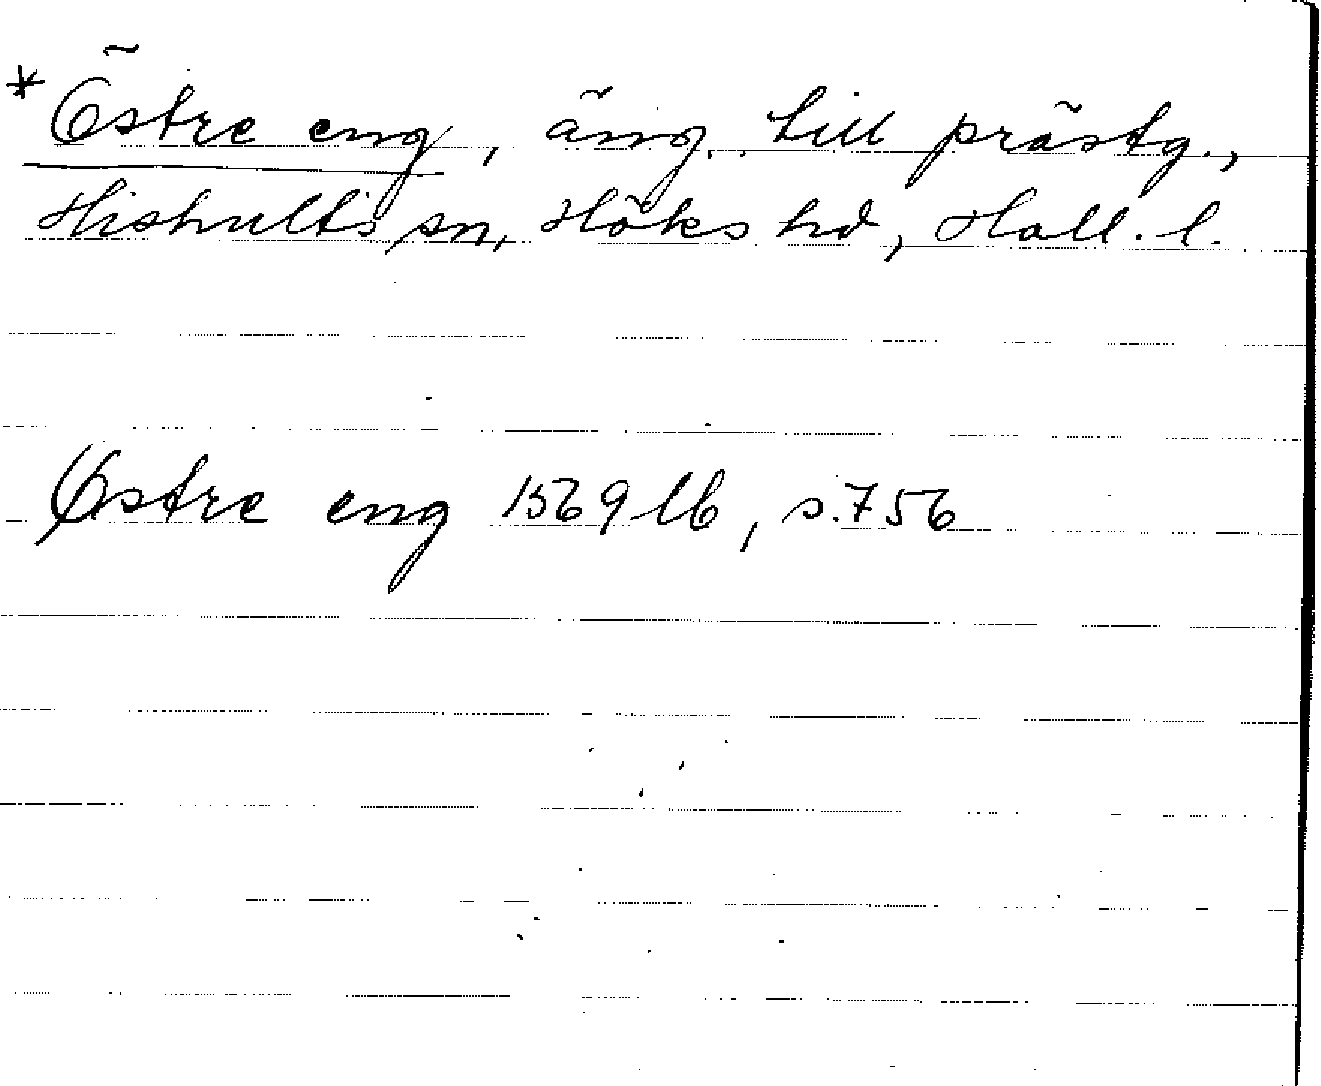 * Östre eng, äng till prästg.,
Hishults sn, Höks hd, Hall. l.
Østre eng 1569 lb, s. 756